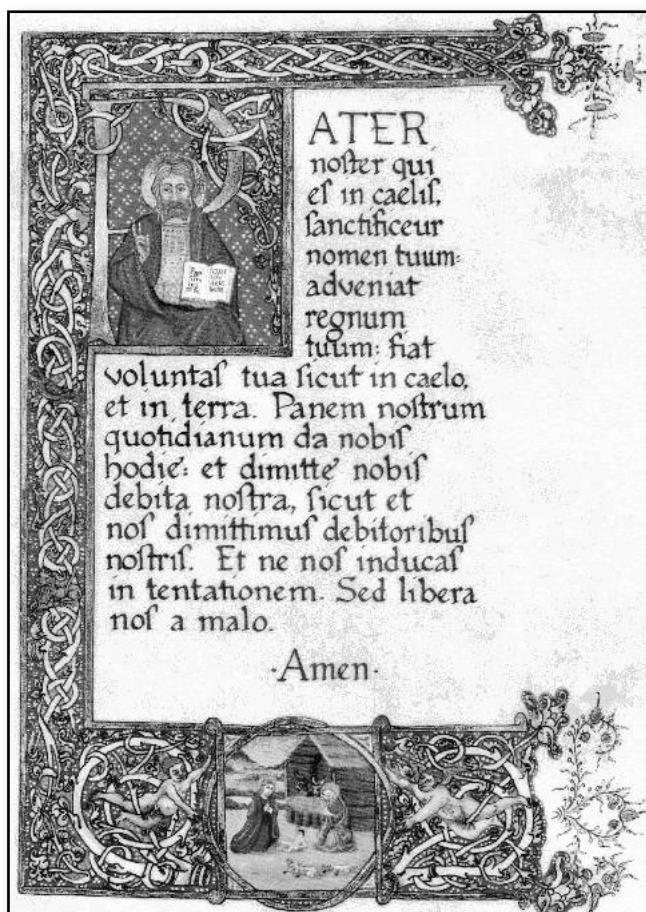 PATER
noſter qui
eſ in caeliſ,
ſanctificeur
nomen tuum:
adveniat
regnum
tuum: fiat
voluntaſ tua ſicut in caelo,
et in terra. Panem noſtrum
quotidianum da nobiſ
hodie: et dimitte nobiſ
debita noſtra, ſicut et
noſ dimittimuſ debitoribuſ
noſtriſ. Et ne noſ inducaſ
in tentationem. Sed libera
noſ a malo.
·Amen·